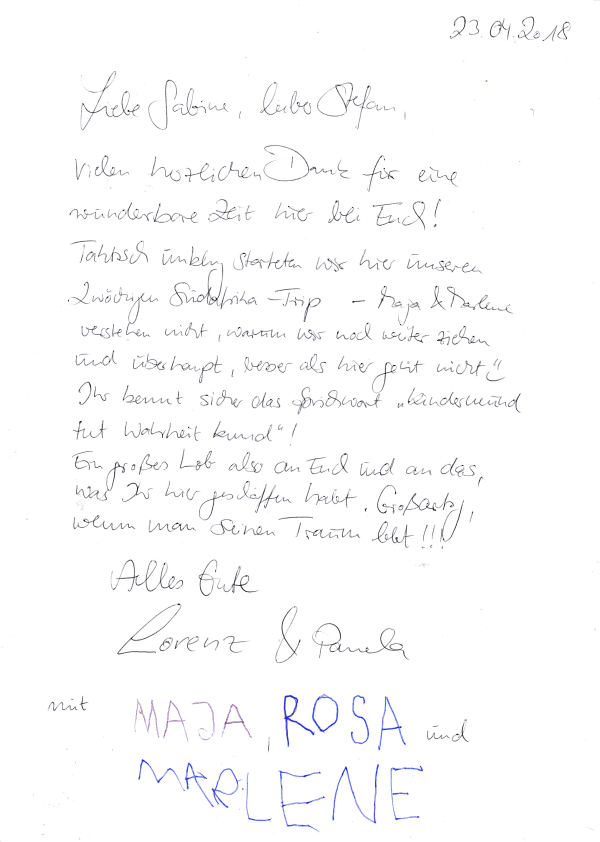 23.04.2018
Liebe Sabine, lieber Stefan,
Vielen herzlichen Dank für eine
wunderbare Zeit hier bei Euch!
starteten wir hier unseren
2wöchigen Südafrika-Trip - Maja & Marlene
verstehen nicht, warum wir noch weiter ziehen
und überhaupt, besser als hier geht nicht!
Ihr kennt sicher das Sprichwort „Kindermund
tut Wahrheit kund"!
Ein großes Lob also an Euch und an das,
was Ihr hier geschaffen habt. Großartig,
wenn man seinen Traum lebt!!!
Alles Gute
Lorenz & Pamela
mit MAJA, ROSA und
MARLENE